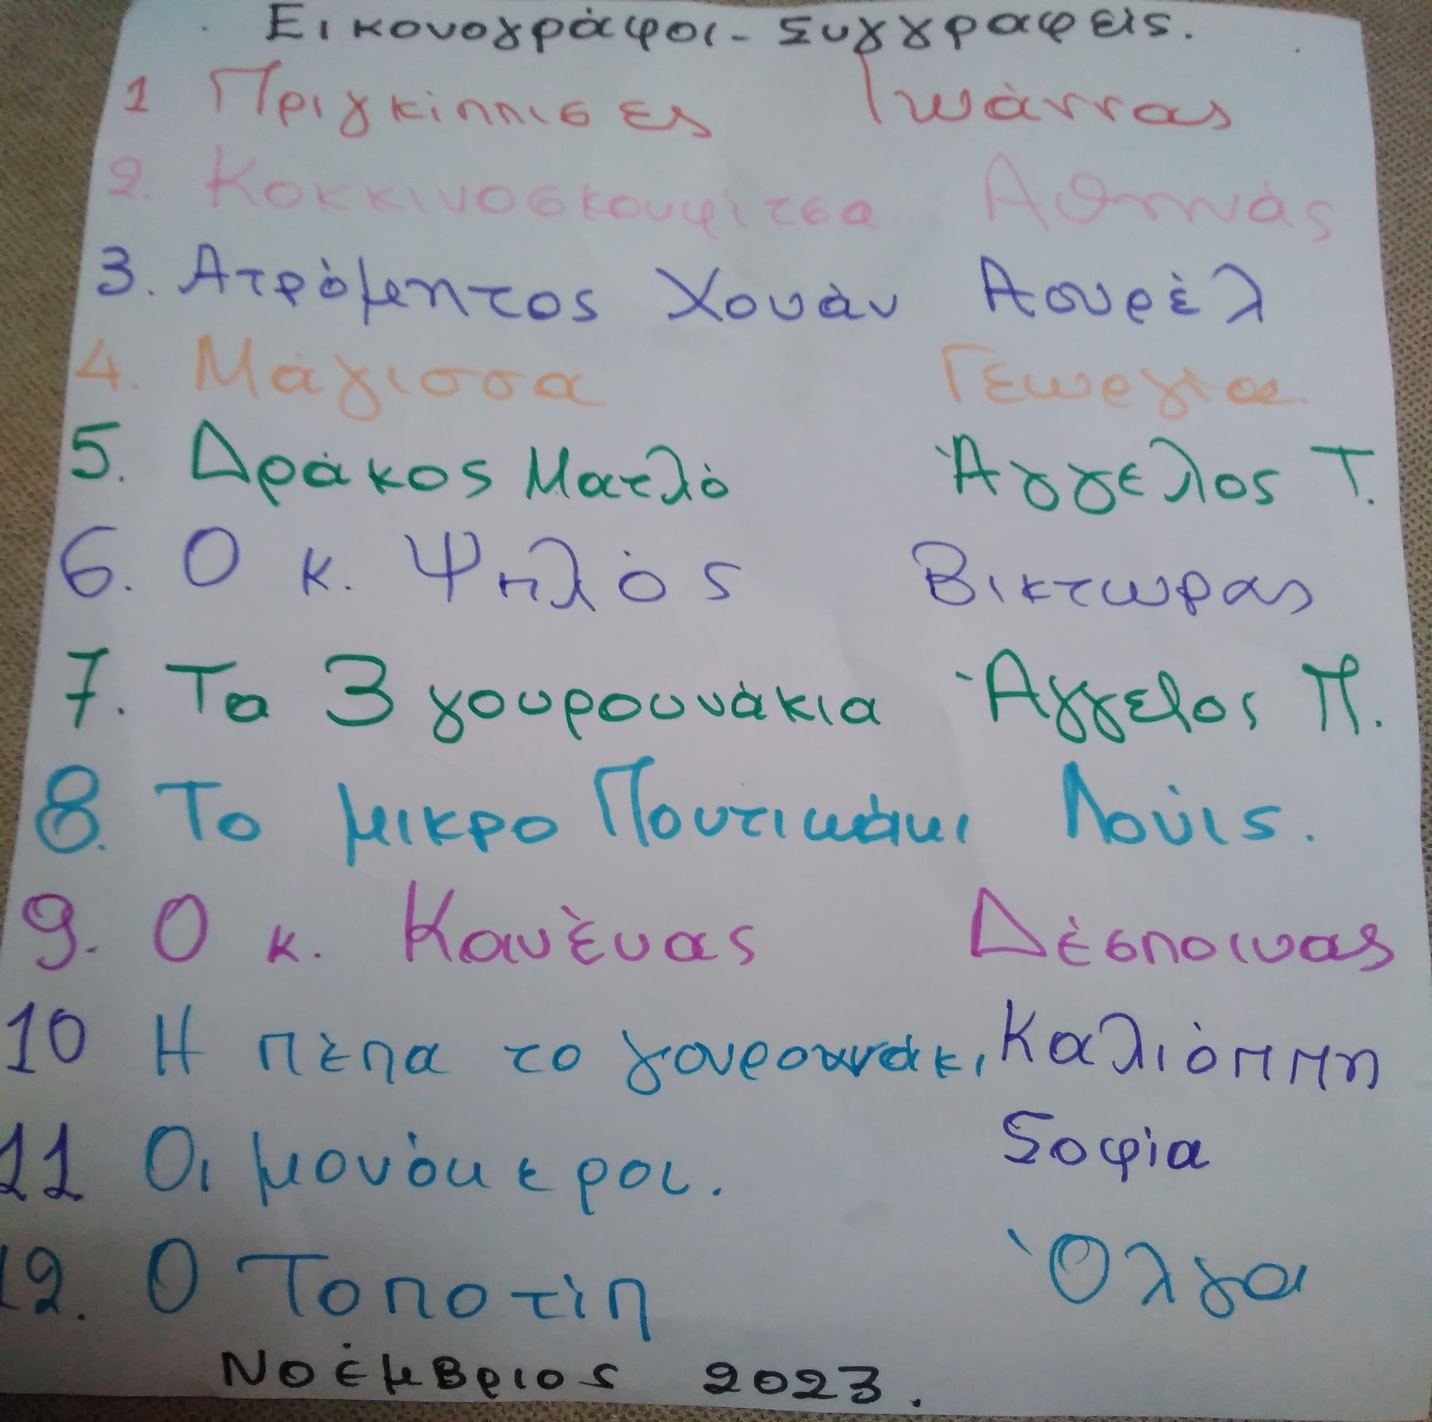 Εικονογράφοι - Συγγραφείς.
1 Πριγκίππισες Ιωάννας
2. Κοκκινοσκουφίτσα Αθηνάς
3. Ατρόμητος Χουάν Αουρέλ
4. Μάγισσα Γεωργία
5. Δράκος Ματλό Άγγελος Τ.
6. Ο κ. Ψηλός Βικτωρας
7. Τα 3 γουρουνάκια Άγγελος Π.
8. Το μικρο Ποντικάκι Λούις.
9. Ο κ. Κανένας Δέσποινας
10 Η πέπα το γουρουνάκι Καλιόππη
11 Οι μονόκεροι. Σοφία
12. Ο Τοποτίπ Όλγα
Νοέμβριος 2023.